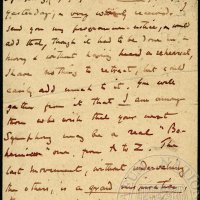 yesterday, & very welcome received. I
send you my pronouncement - which, you would
add that, though it had to be done in a
hurry & without having heard a rehearsal,
I have nothing to retract, but could
easily add much to it. You will
gather from it that I am among
those who wish that your next
Symphony may be a real "Bo-
hemian" one, from A to Z. The
last movement, without undervaluing
the others, is a grand inspiration